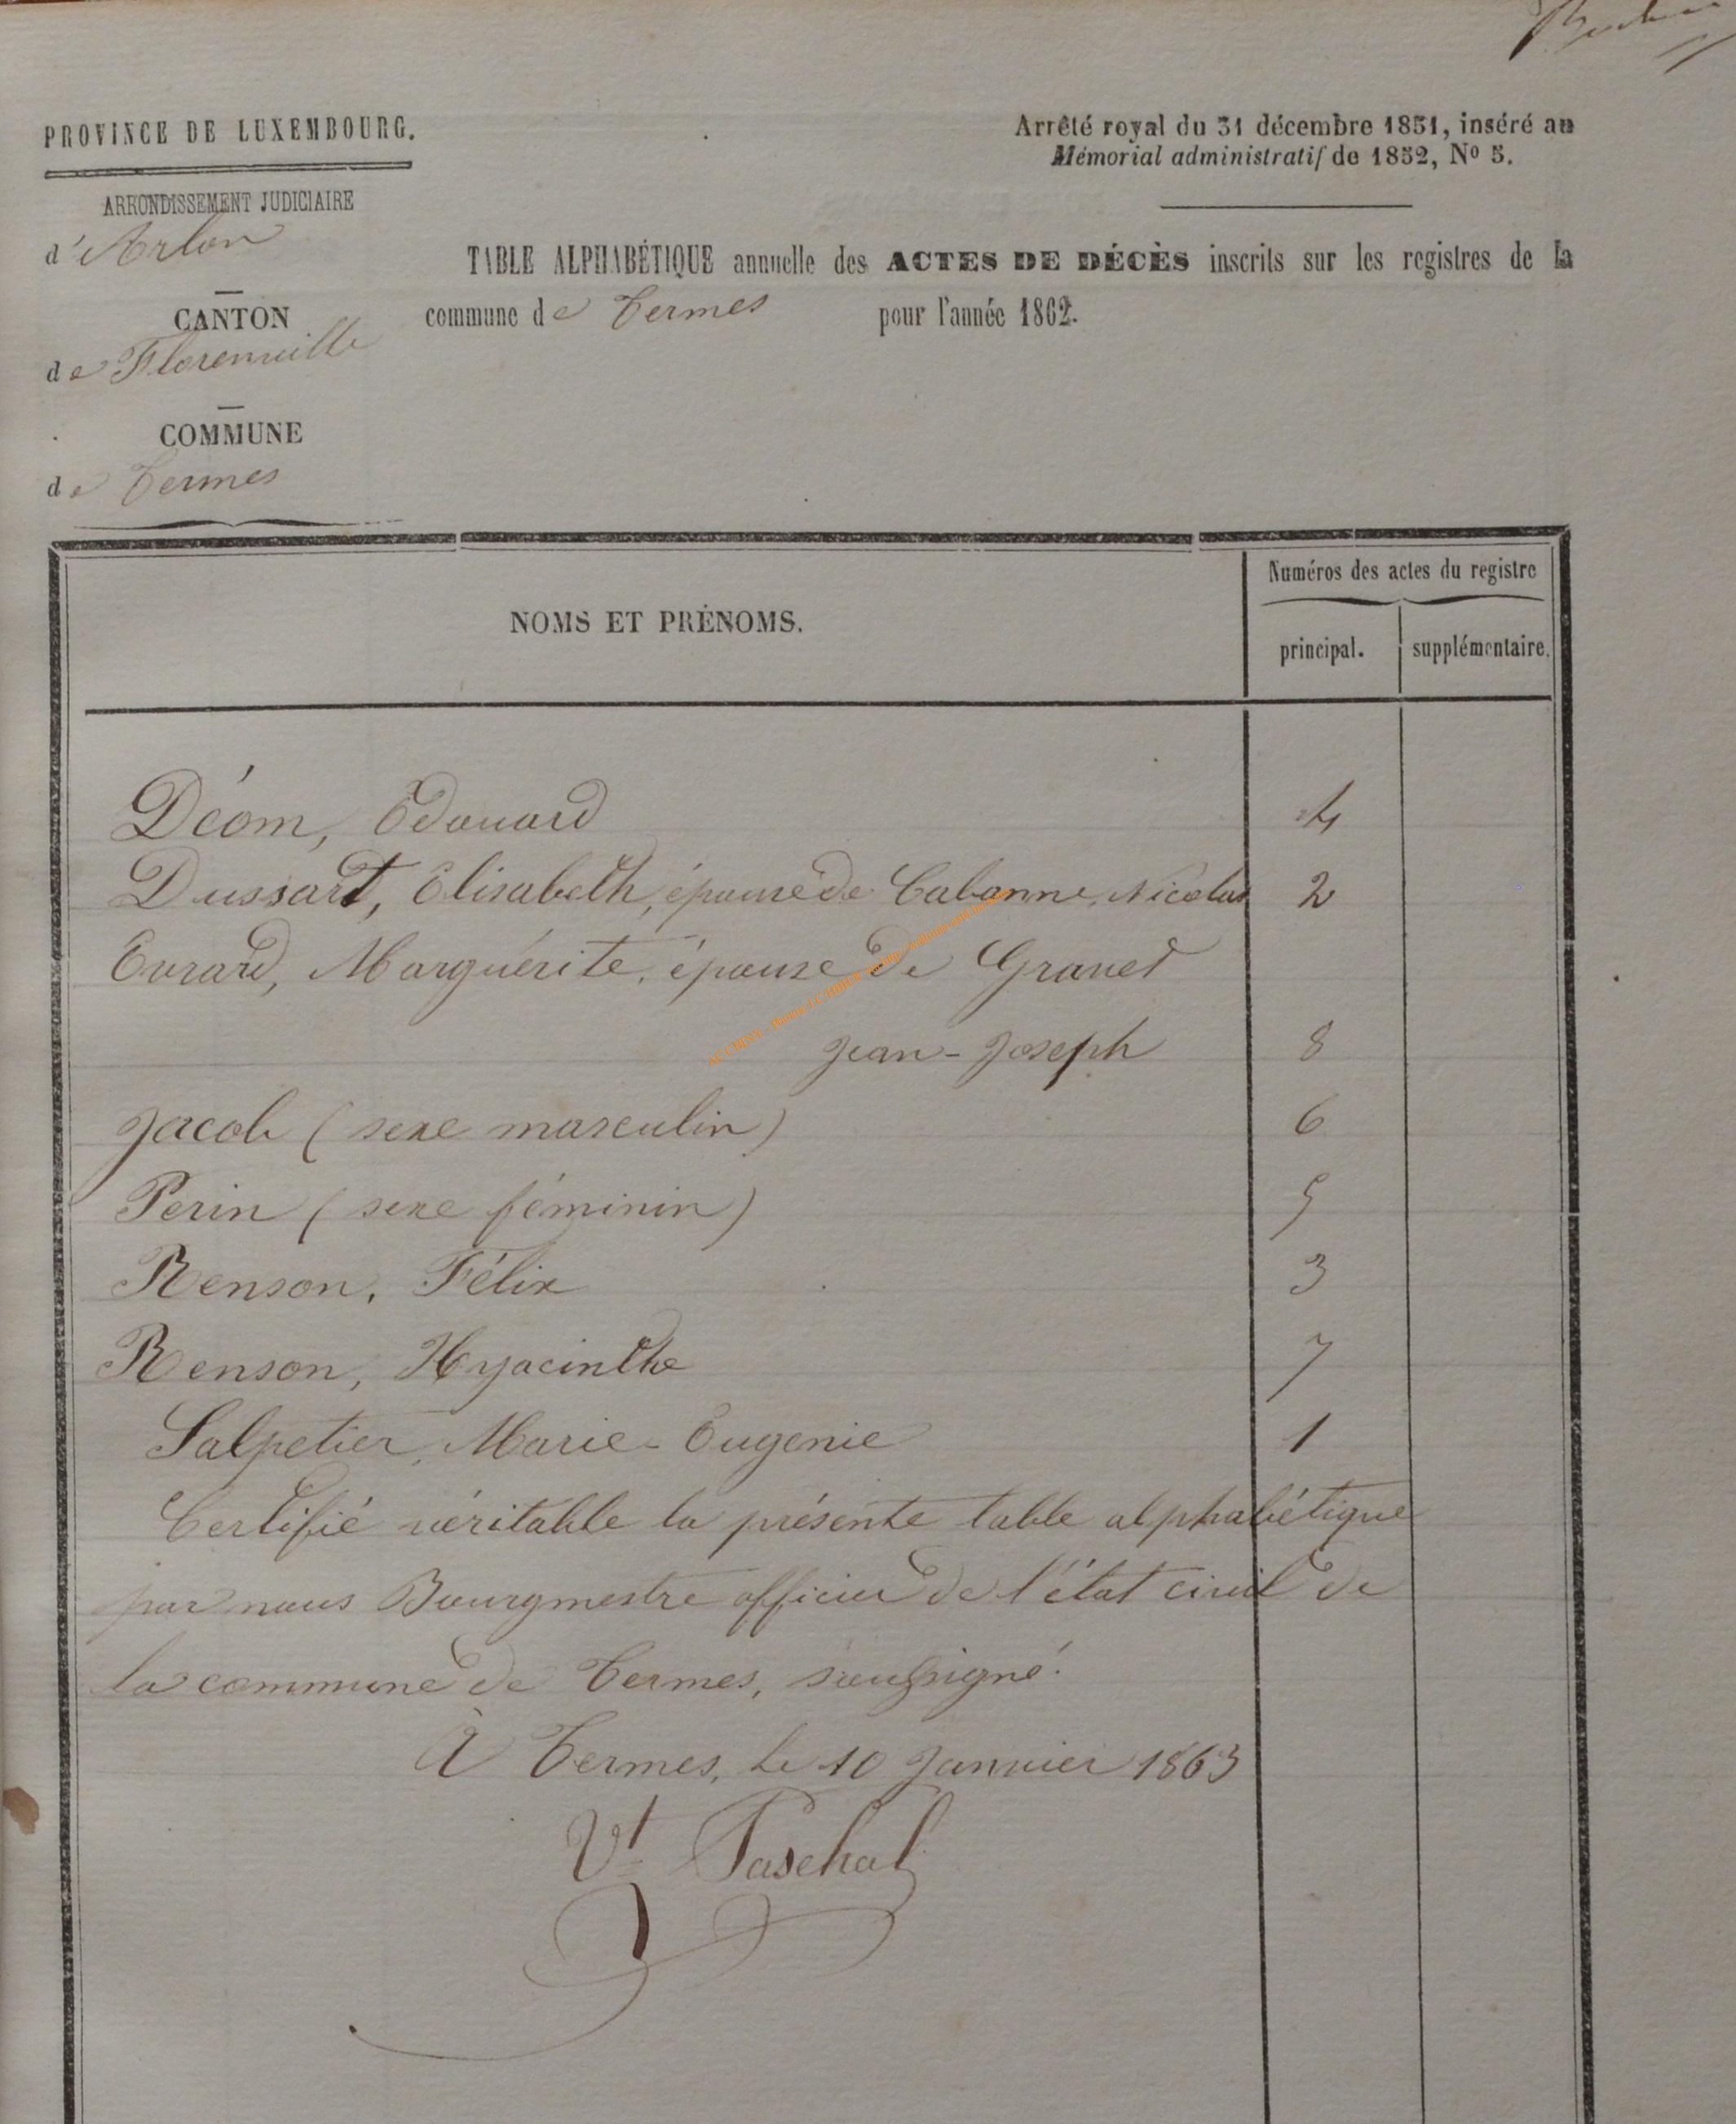 PROVINCE DE LUXEMBOURG.
Arrêté royal du 31 décembre 1851, inséré au
Mémorial administratif de 1852, Nº 5.
ARRONDISSEMENT JUDICIAIRE
d'Arlon
TABLE ALPHABÉTIQUE annuelle des ACTES DE DÉCÈS inscrits sur les registres de la
commune de Termes pour l'année 1862.
CANTON
de Florenville
COMMUNE
de Termes
NOMS ET PRÉNOMS.
Numéros des actes du registre
principal. supplémentaire.
Déom, Edouard 4
Dussart, Elisabeth, épouse de Cabanne, Nicolas 2
Evrard, Marguérite, épouse de Granet
Jean-Joseph 8
Jacob (sexe masculin) 6
Perin (sexe féminin) 5
Renson, Félix 3
Renson, Hyacinthe 7
Salpetier, Marie-Eugenie 1
Certifié véritable la présente table alphabétique
par nous Bourgmestre officier de l'état civil de
la commune de Termes, soussigné.
À Termes, le 10 Janvier 1863
Vt Paschal